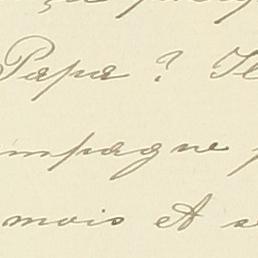 Papa ? Il
ompagne
mois et s